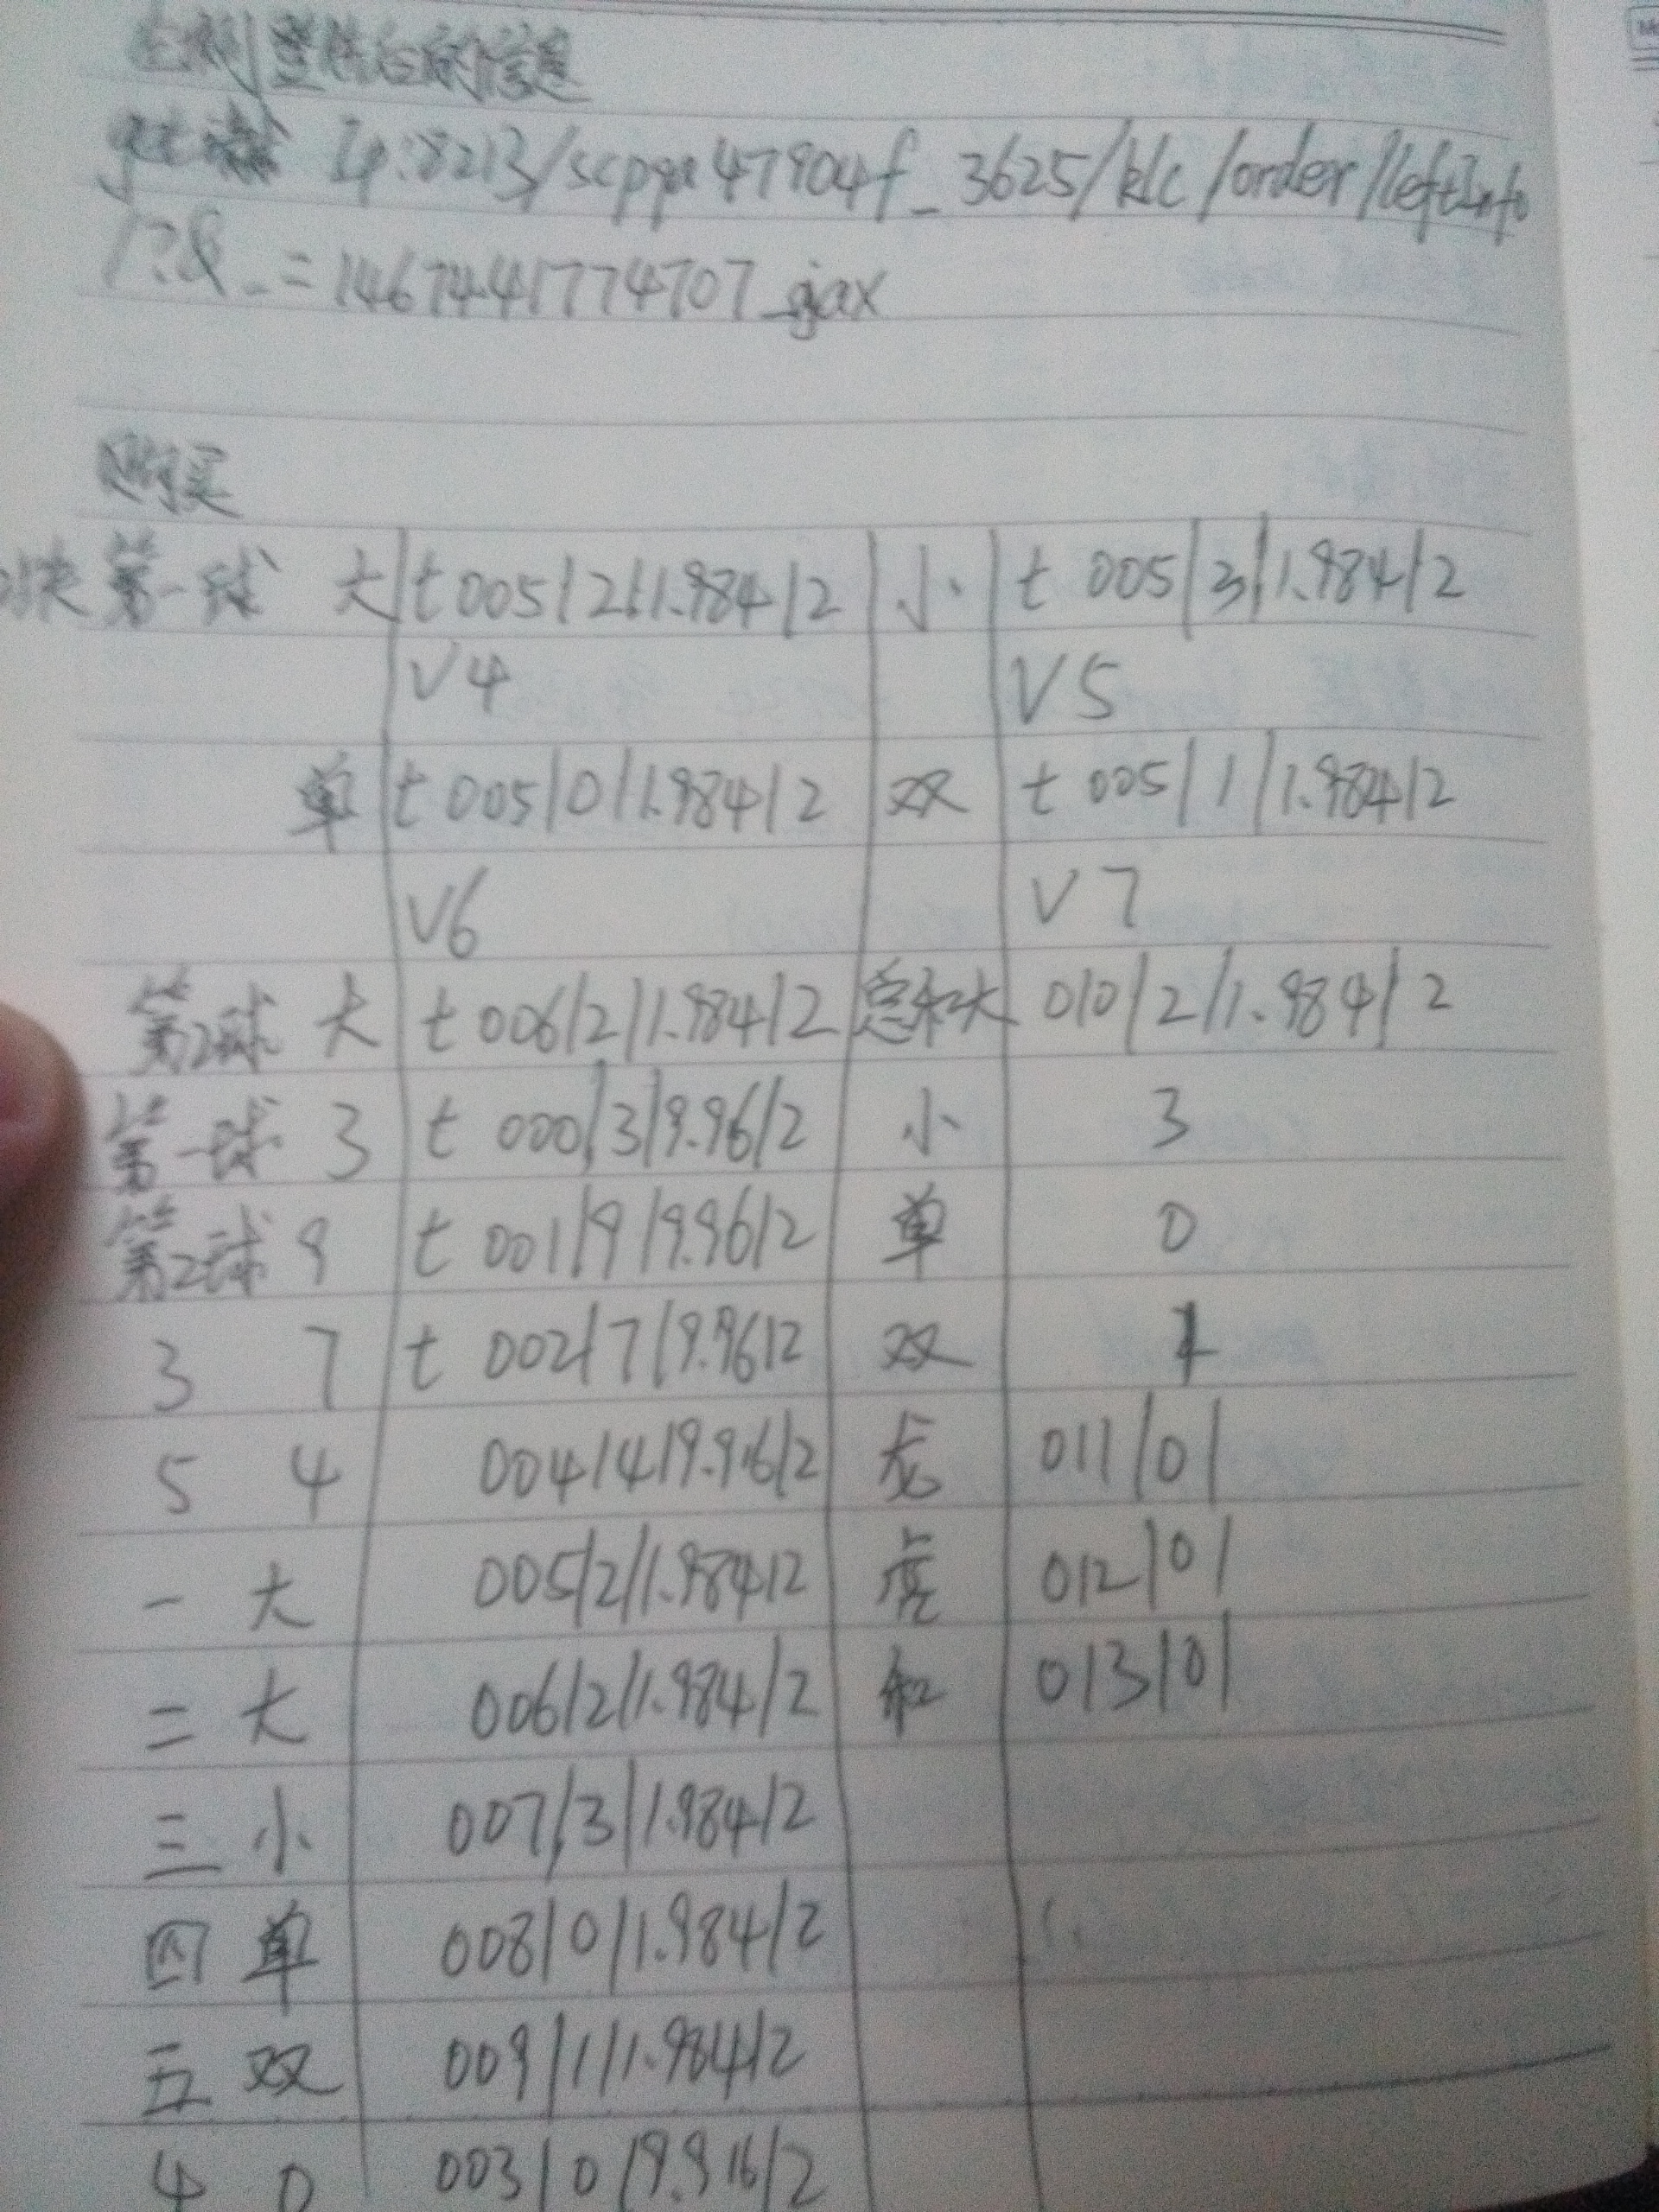 左侧登陆后的信息
get请求 Ip:8213/scpga47904f_3625/klc/order/leftInfo
/?&_=1467441774707_ajax
购买
第一球 大 t 005|2|1.984|2 小 t 005|3|1.984|2
V4 V5
单 t 005|0|1.984|2 双 t 005|1|1.984|2
V6 V7
第2球 大 t 006|2|1.984|2 总和大 010|2|1.984|2
第一球 3 t 000|3|9.96|2 小 3
第2球 9 t 001|9|9.96|2 单 0
3 7 t 002|7|9.96|2 双 1
5 4 004|4|9.96|2 龙 011|0|
一 大 005|2|1.984|2 虎 012|0|
二 大 006|2|1.984|2 和 013|0|
三 小 007|3|1.984|2
四 单 008|0|1.984|2
五 双 009|1|1.984|2
4 0 003|0|9.916|2